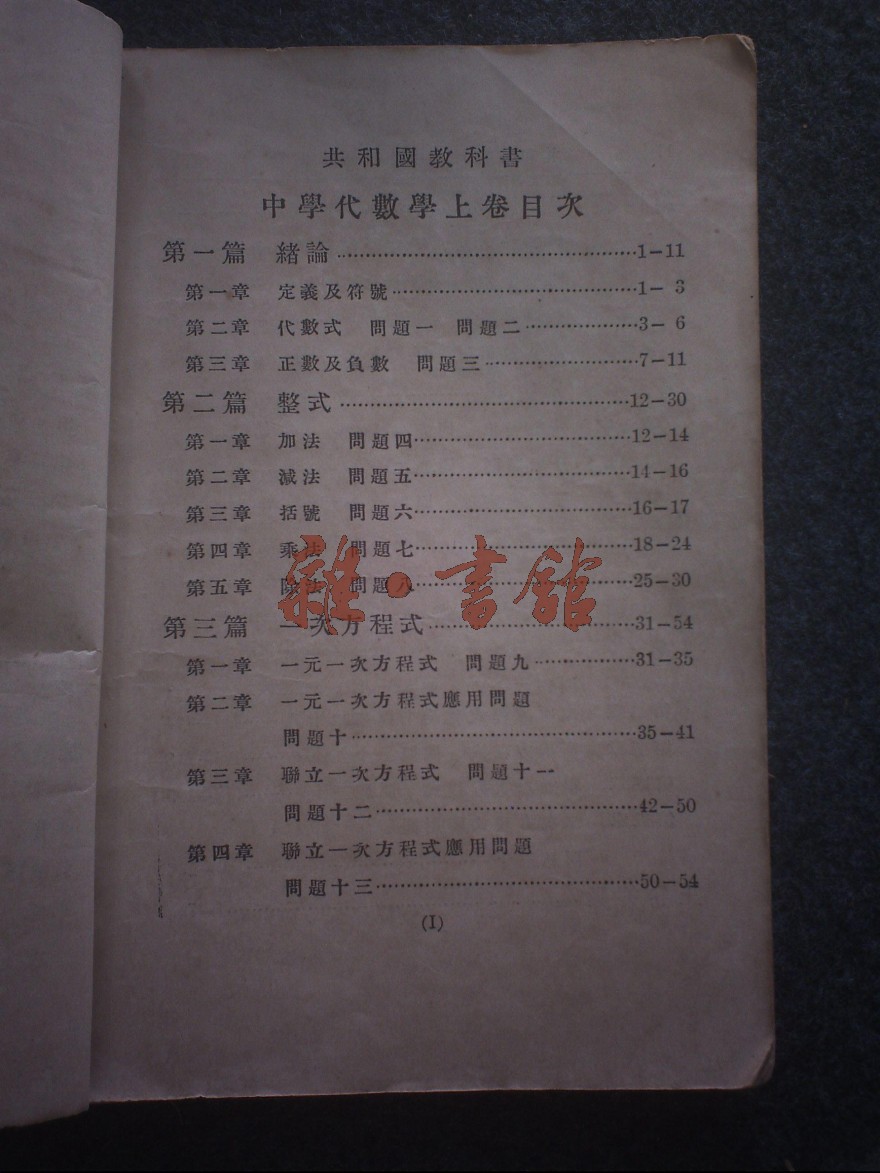 共和國教科書
中學代數學上卷目次
第一篇 緒論…………1-11
第一章 定義及符號…………1- 3
第二章 代數式 問題一 問題二…………3- 6
第三章 正數及負數 問題三…………7-11
第二篇 整式…………12-30
第一章 加法 問題四…………12-14
第二章 減法 問題五…………14-16
第三章 括號 問題六…………16-17
第四章 乘法 問題七…………18-24
第五章 除法 問題八…………25-30
雜·書館
第三篇 一次方程式…………31-54
第一章 一元一次方程式 問題九…………31-35
第二章 一元一次方程式應用問題
問題十…………35-41
第三章 聯立一次方程式 問題十一
問題十二…………42-50
第四章 聯立一次方程式應用問題
問題十三…………50-54
(I)